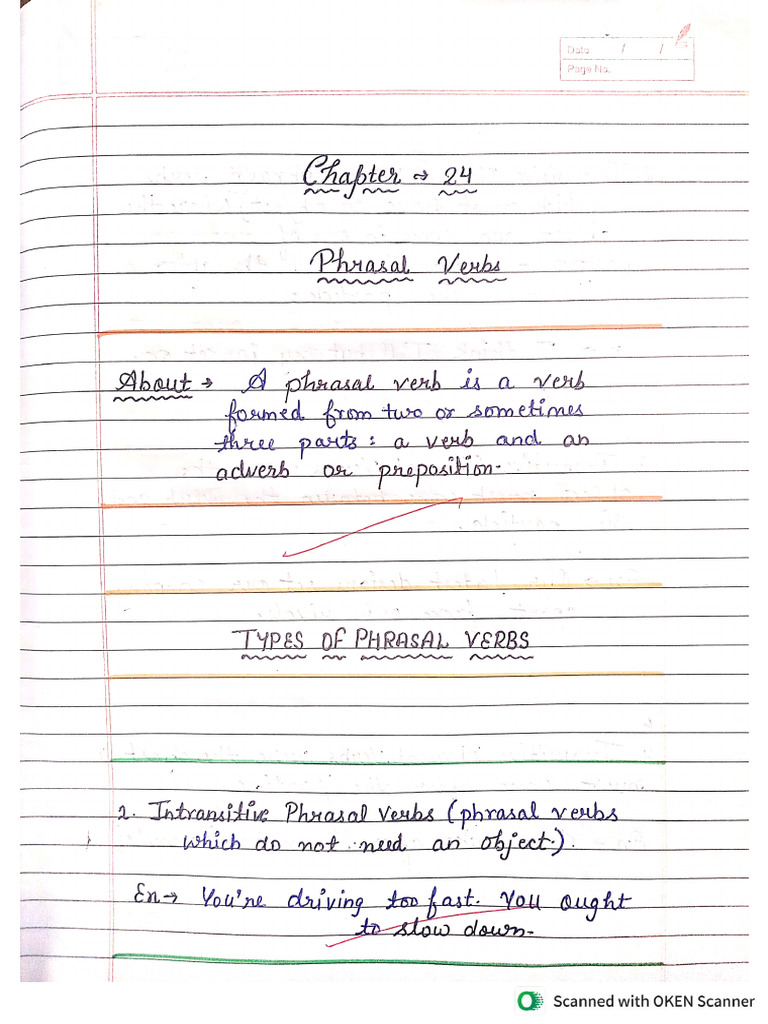 Date / /
Page No.
Chapter → 24
Phrasal Verbs
About → A phrasal verb is a verb
formed from two or sometimes
three parts: a verb and an
adverb or preposition.
TYPES OF PHRASAL VERBS
1. Intransitive Phrasal Verbs (phrasal verbs
which do not need an object.).
Ex → You're driving too fast. You ought
to slow down.
Scanned with OKEN Scanner